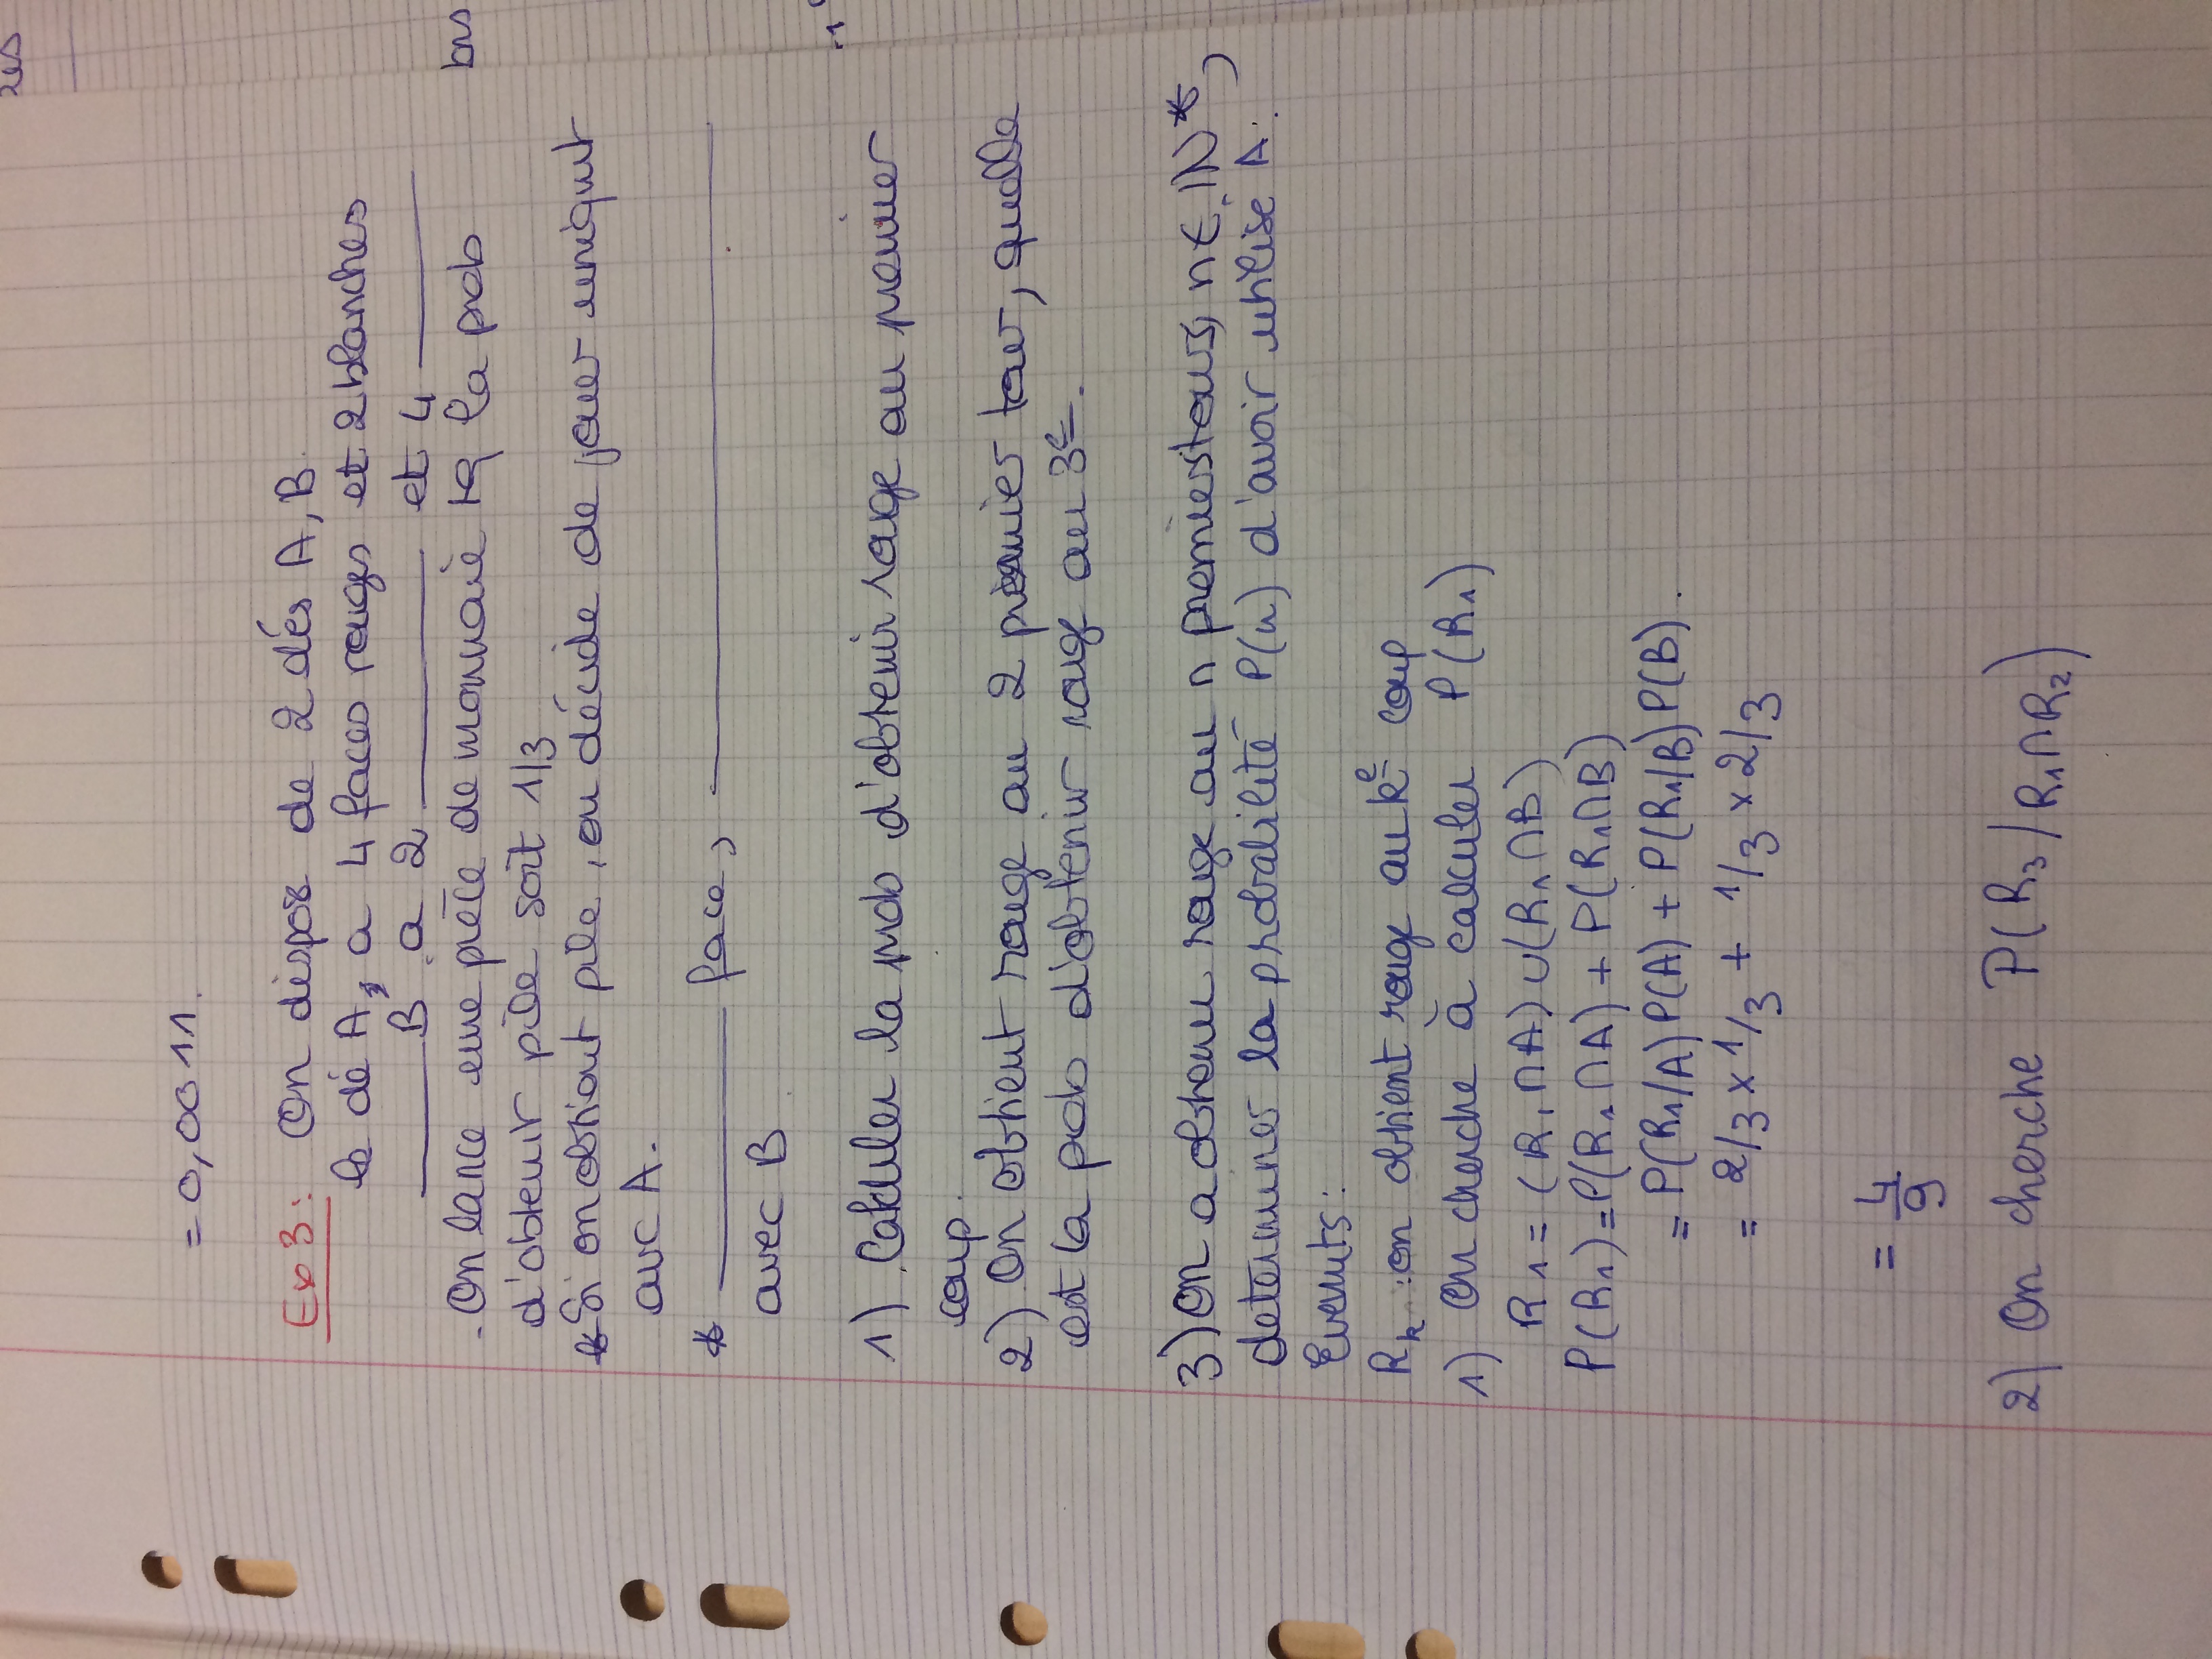 res
= 0,0011.
Ex 3: On dispose de 2 dés A, B.
le dé A, a 4 faces rouges et 2 blanches
B a 2 et 4
- On lance une pièce de monnaie tq la prob
bns
d'obtenir pile soit 1/3
* Si on obtient pile, on décide de jouer uniqmt
avc A.
* face,
avec B
-1
1) Calculer la prob d'obtenir rouge au premier
coup.
2) On obtient rouge au 2 premier tour, quelle
est la prob d'obtenir rouge au 3e.
3) On a obtenu rouge au n premiers tours, n ∈ IN*,
determiner la probabilité P(n) d'avoir utilisé A.
Evenmts :
Rk : on obtient rouge au ke coup
1) On cherche à calculer P(R1)
R1 = (R1 ∩ A) ∪ (R1 ∩ B)
P(R1) = P(R1 ∩ A) + P(R1 ∩ B)
= P(R1/A) P(A) + P(R1/B) P(B).
= 2/3 x 1/3 + 1/3 x 2/3
= 4/9
2) On cherche P(R3 / R1 ∩ R2)